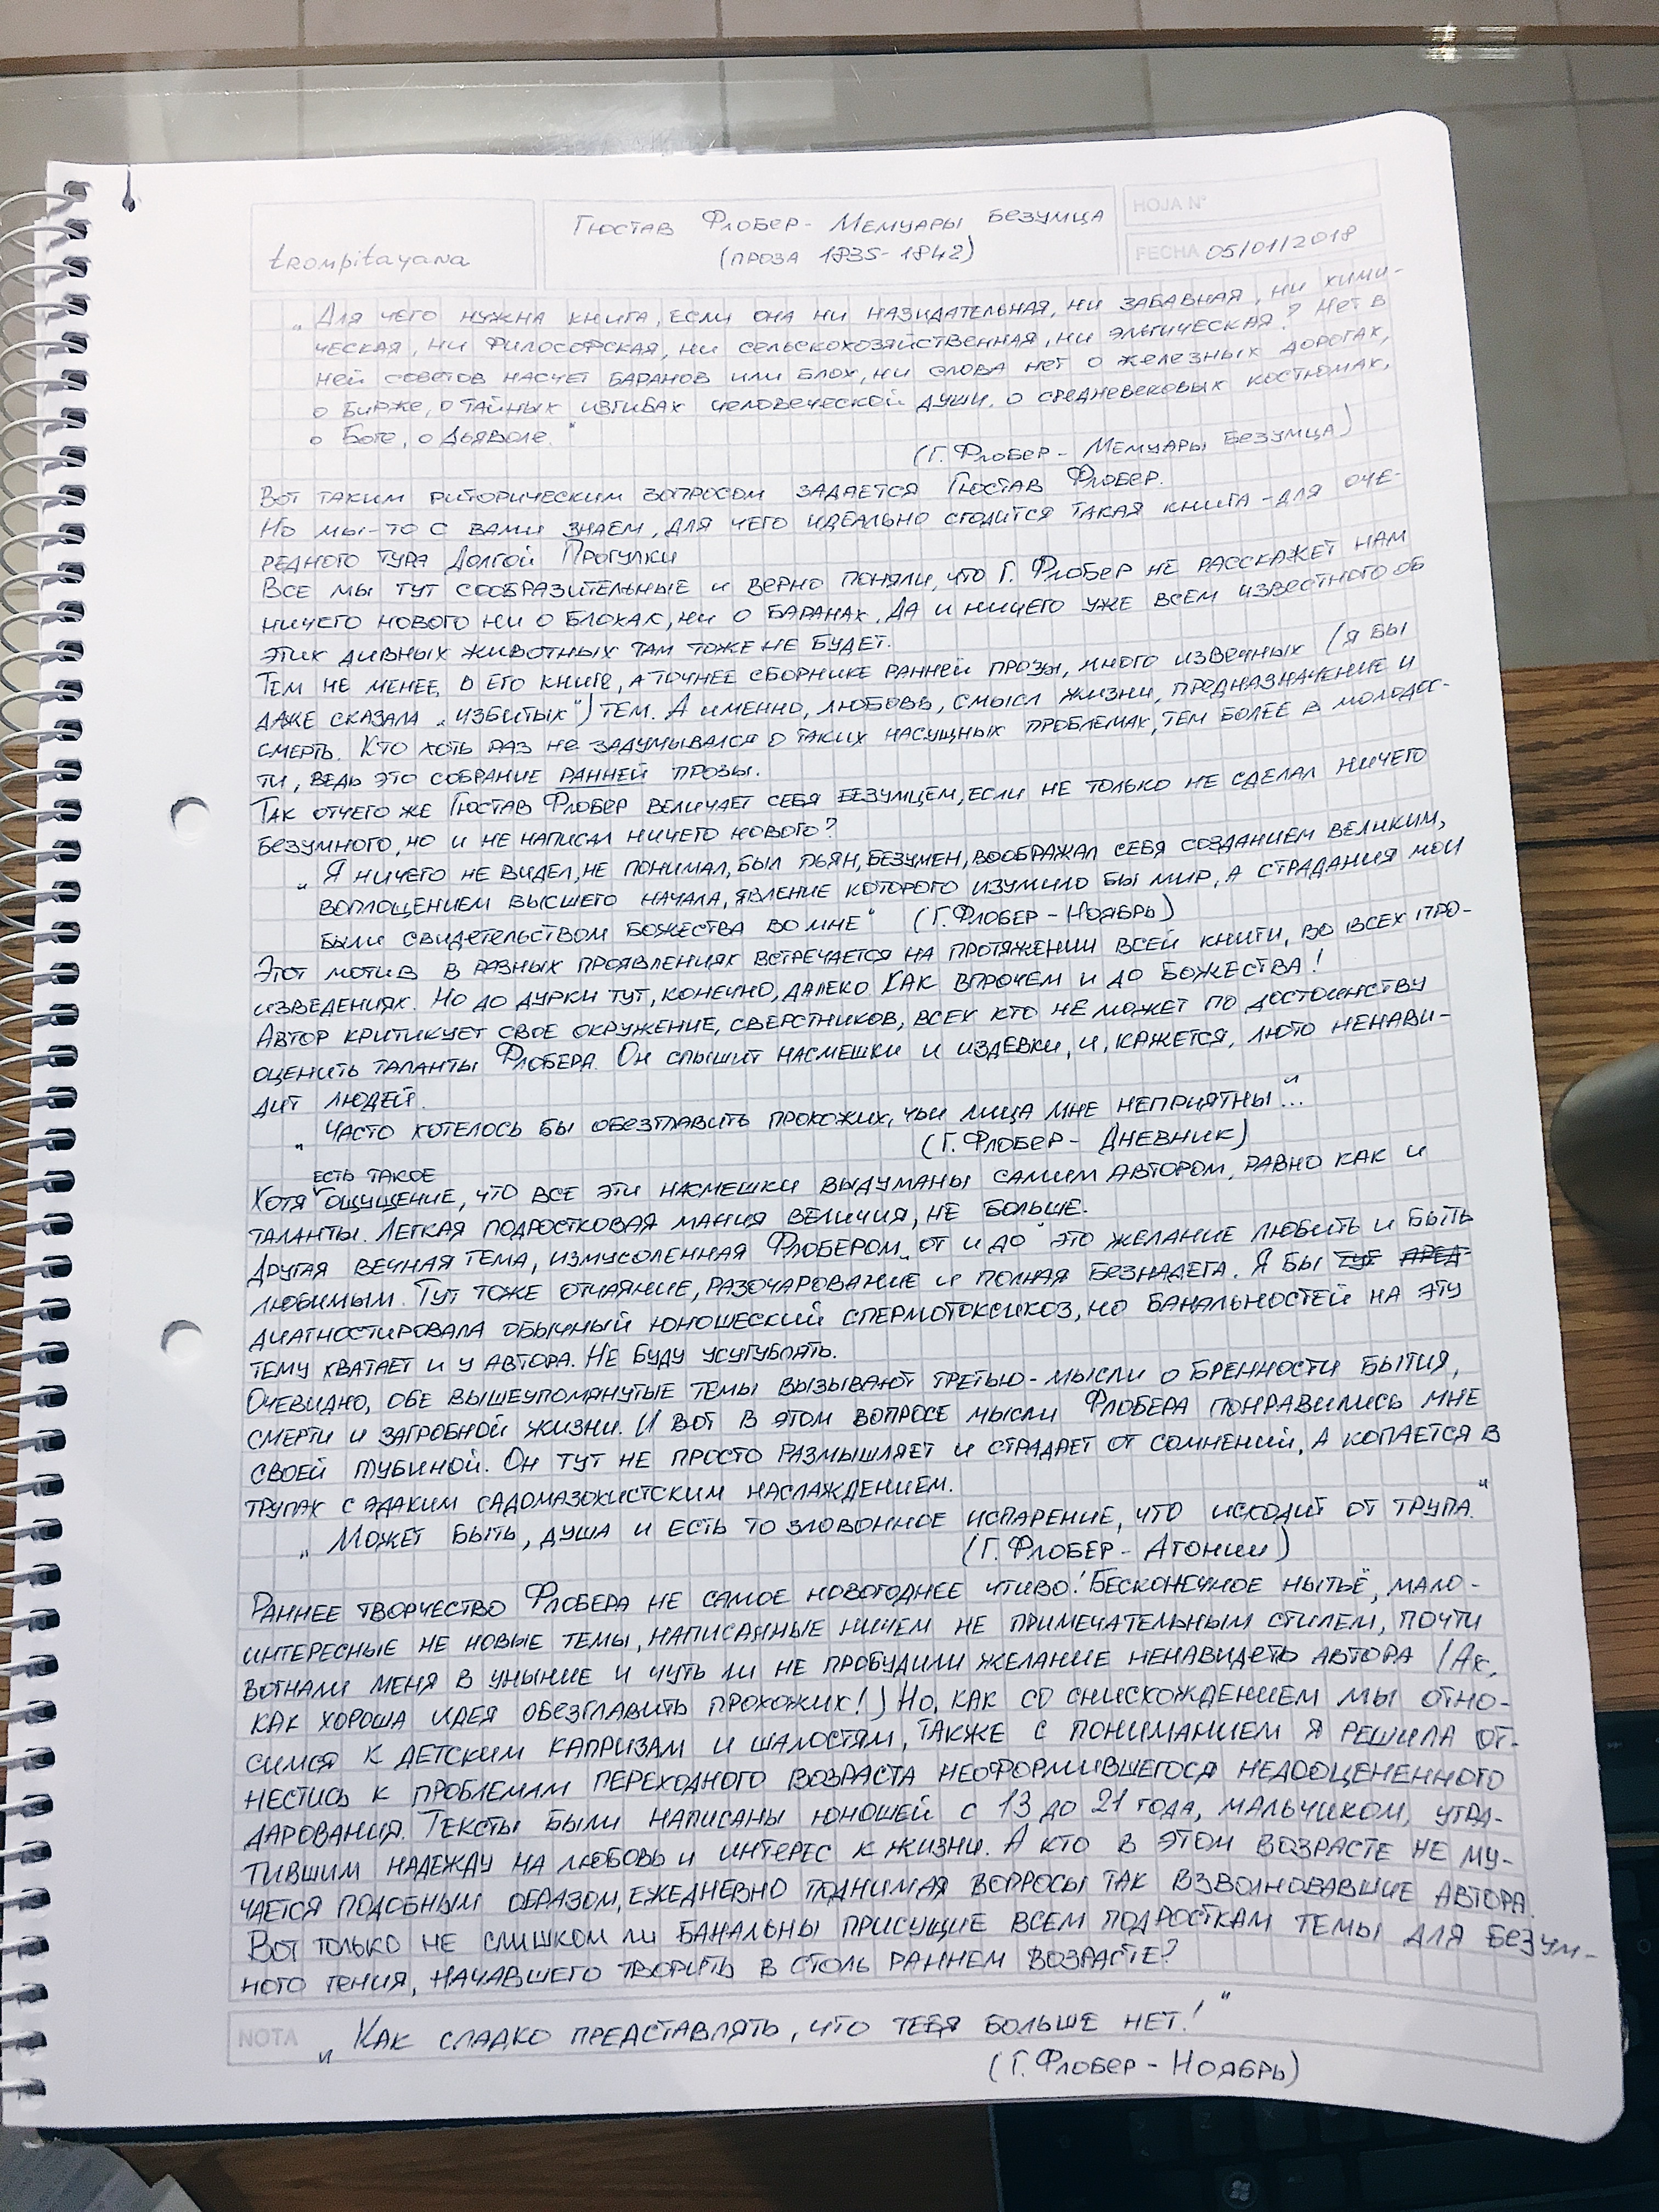 trompitayana
Гюстав Флобер - Мемуары безумца
(проза 1835-1842)
HOJA N°
FECHA 05/01/2018
„Для чего нужна книга, если она ни назидательная, ни забавная, ни хими-
ческая, ни философская, ни сельскохозяйственная, ни элегическая? Нет в
ней советов насчет баранов или блох, ни слова нет о железных дорогах,
о Бирже, о тайных изгибах человеческой души, о средневековых костюмах,
о Боге, о Дьяволе."
(Г. Флобер - Мемуары безумца)
Вот таким риторическим вопросом задается Гюстав Флобер.
Но мы-то с вами знаем, для чего идеально сгодится такая книга - для оче-
редного тура Долгой Прогулки
Все мы тут сообразительные и верно поняли, что Г. Флобер не расскажет нам
ничего нового ни о блохах, ни о баранах. Да и ничего уже всем известного об
этих дивных животных там тоже не будет.
Тем не менее, в его книге, а точнее сборнике ранней прозы, много извечных (я бы
даже сказала „избитых") тем. А именно, любовь, смысл жизни, предназначение и
смерть. Кто хоть раз не задумывался о таких насущных проблемах, тем более в молодос-
ти, ведь это собрание ранней прозы.
Так отчего же Гюстав Флобер величает себя безумцем, если не только не сделал ничего
безумного, но и не написал ничего нового?
„Я ничего не видел, не понимал, был пьян, безумен, воображал себя созданием великим,
воплощением высшего начала, явление которого изумило бы мир, а страдания мои
были свидетельством божества во мне" (Г. Флобер - Ноябрь)
Этот мотив в разных проявлениях встречается на протяжении всей книги, во всех про-
изведениях. Но до дурки тут, конечно, далеко. Как впрочем и до божества!
Автор критикует свое окружение, сверстников, всех кто не может по достоинству
оценить таланты Флобера. Он слышит насмешки и издевки, и, кажется, люто ненави-
дит людей.
„Часто хотелось бы обезглавить прохожих, чьи лица мне неприятны"...
(Г. Флобер - Дневник)
есть такое
Хотя ощущение, что все эти насмешки выдуманы самим автором, равно как и
таланты. Легкая подростковая мания величия, не больше.
Другая вечная тема, измусоленная Флобером „от и до" это желание любить и быть
любимым. Тут тоже отчаяние, разочарование и полная безнадега. Я бы
диагностировала обычный юношеский спермотоксикоз, но банальностей на эту
тему хватает и у автора. Не буду усугублять.
Очевидно, обе вышеупомянутые темы вызывают третью - мысли о бренности бытия,
смерти и загробной жизни. И вот в этом вопросе мысли Флобера понравились мне
своей глубиной. Он тут не просто размышляет и страдает от сомнений, а копается в
трупах с эдаким садомазохистским наслаждением.
„Может быть, душа и есть то зловонное испарение, что исходит от трупа."
(Г. Флобер - Агонии)
Раннее творчество Флобера не самое новогоднее чтиво! Бесконечное нытьё, мало-
интересные не новые темы, написанные ничем не примечательным стилем, почти
вогнали меня в уныние и чуть ли не пробудили желание ненавидеть автора (Ах,
как хороша идея обезглавить прохожих!) Но, как со снисхождением мы отно-
симся к детским капризам и шалостям, также с пониманием я решила от-
нестись к проблемам переходного возраста неоформившегося недооцененного
дарования. Тексты были написаны юношей с 13 до 21 года, мальчиком, утра-
тившим надежду на любовь и интерес к жизни. А кто в этом возрасте не му-
чается подобным образом, ежедневно поднимая вопросы так взволновавшие автора.
Вот только не слишком ли банальны присущие всем подросткам темы для безум-
ного гения, начавшего творить в столь раннем возрасте?
NOTA
„Как сладко представлять, что тебя больше нет!"
(Г. Флобер - Ноябрь)